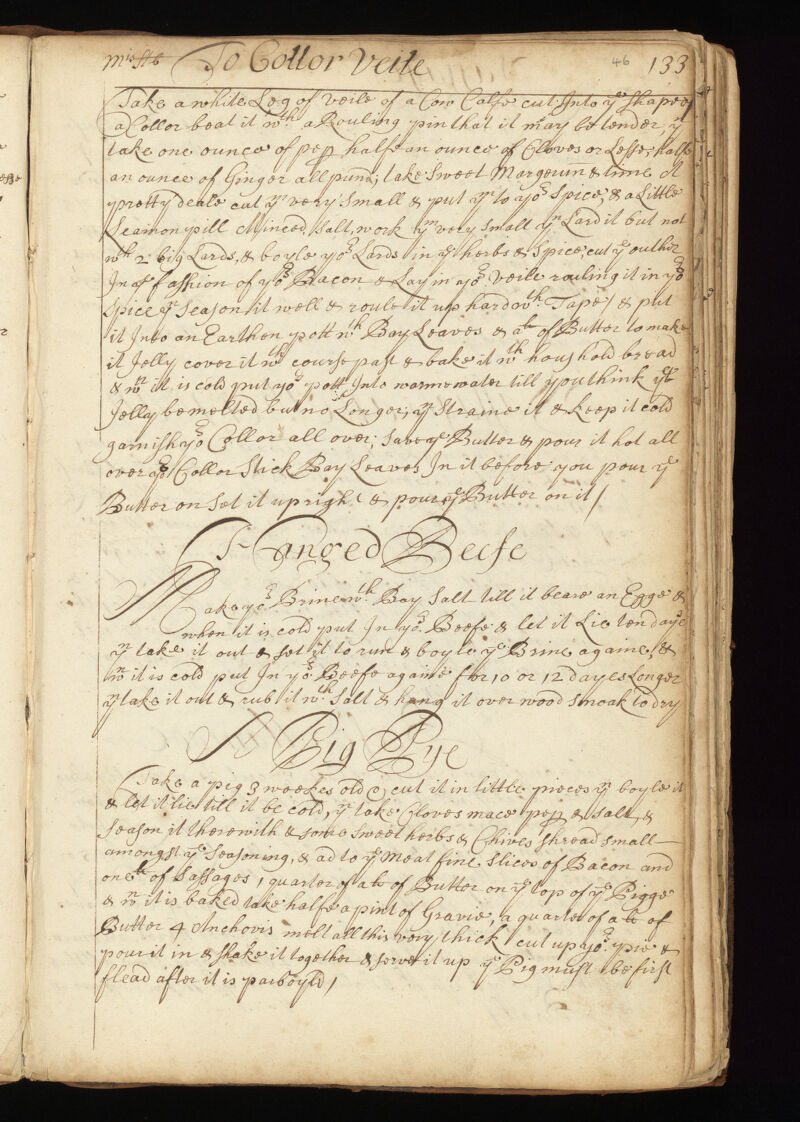 To Collor Veile 46 133
Take a white Leg of veile of a Cow Calfe cut Into ye shape of
a Collor beat it wth a Rouling pin that it may be tender, yn
take one ounce of pepp halfe an ounce of Cloves or Lesse, halfe
an ounce of Ginger all pund; take sweet Margerum & time A
pretty deale cut ym very small & put ym to yor spice, & a Little
Leamon pill Minced, salt, work ym very small yn Lard it but not
wth 2 big Lards, & boyle yor Lards in ye herbs & spice, cut ye
In ye fashion of yor Bacon & Lay in yor veile rouling it in yor
spice yn season it well & roule it up hard wth Tape, & put
it Into an Earthen pott wth Bay Leaves & a lb of Butter to make
it Jelly cover it wth course past & bake it wth houshold bread
& wn it is cold put yor pott Into warme water till you think ye
Jelly be melted but no Longer; yn straine it & keep it cold
garnish yor Collor all over; save ye Butter & pour it hot all
over yor Collor stick Bay Leaves In it before you pour ye
Butter on set it upright & pour ye Butter on it /
Hanged Beefe
Make yor Brine wth Bay salt till it beare an Egge &
when it is cold put In yor Beefe & let it Lie ten daye
yn take it out & set it to run & boyle ye Brine againe, &
wn it is cold put In yor Beefe againe for 10 or 12 dayes Longer
yn take it out & rub it wth salt & hang it over wood smoak to dry
A Pig Pye
Take a pig 3 weekes old & cut it in little pieces yn boyle it
& let it lie till it be cold, yn take Cloves mace pepp & salt, &
season it therewith & some sweet herbs & Chives shread small
amongst ye seasoning, & ad to ye Meat fine slices of Bacon and
one lb of Sassages 1 quarter of a lb of Butter on ye top of ye Pigge
& wn it is baked take halfe a pint of Gravie, a quarter of a lb of
Butter 4 Anchovis melt all this very thick cut up yor pie &
pour it in & shake it together & serve it up ye Pig must be first
flead after it is parboyld /